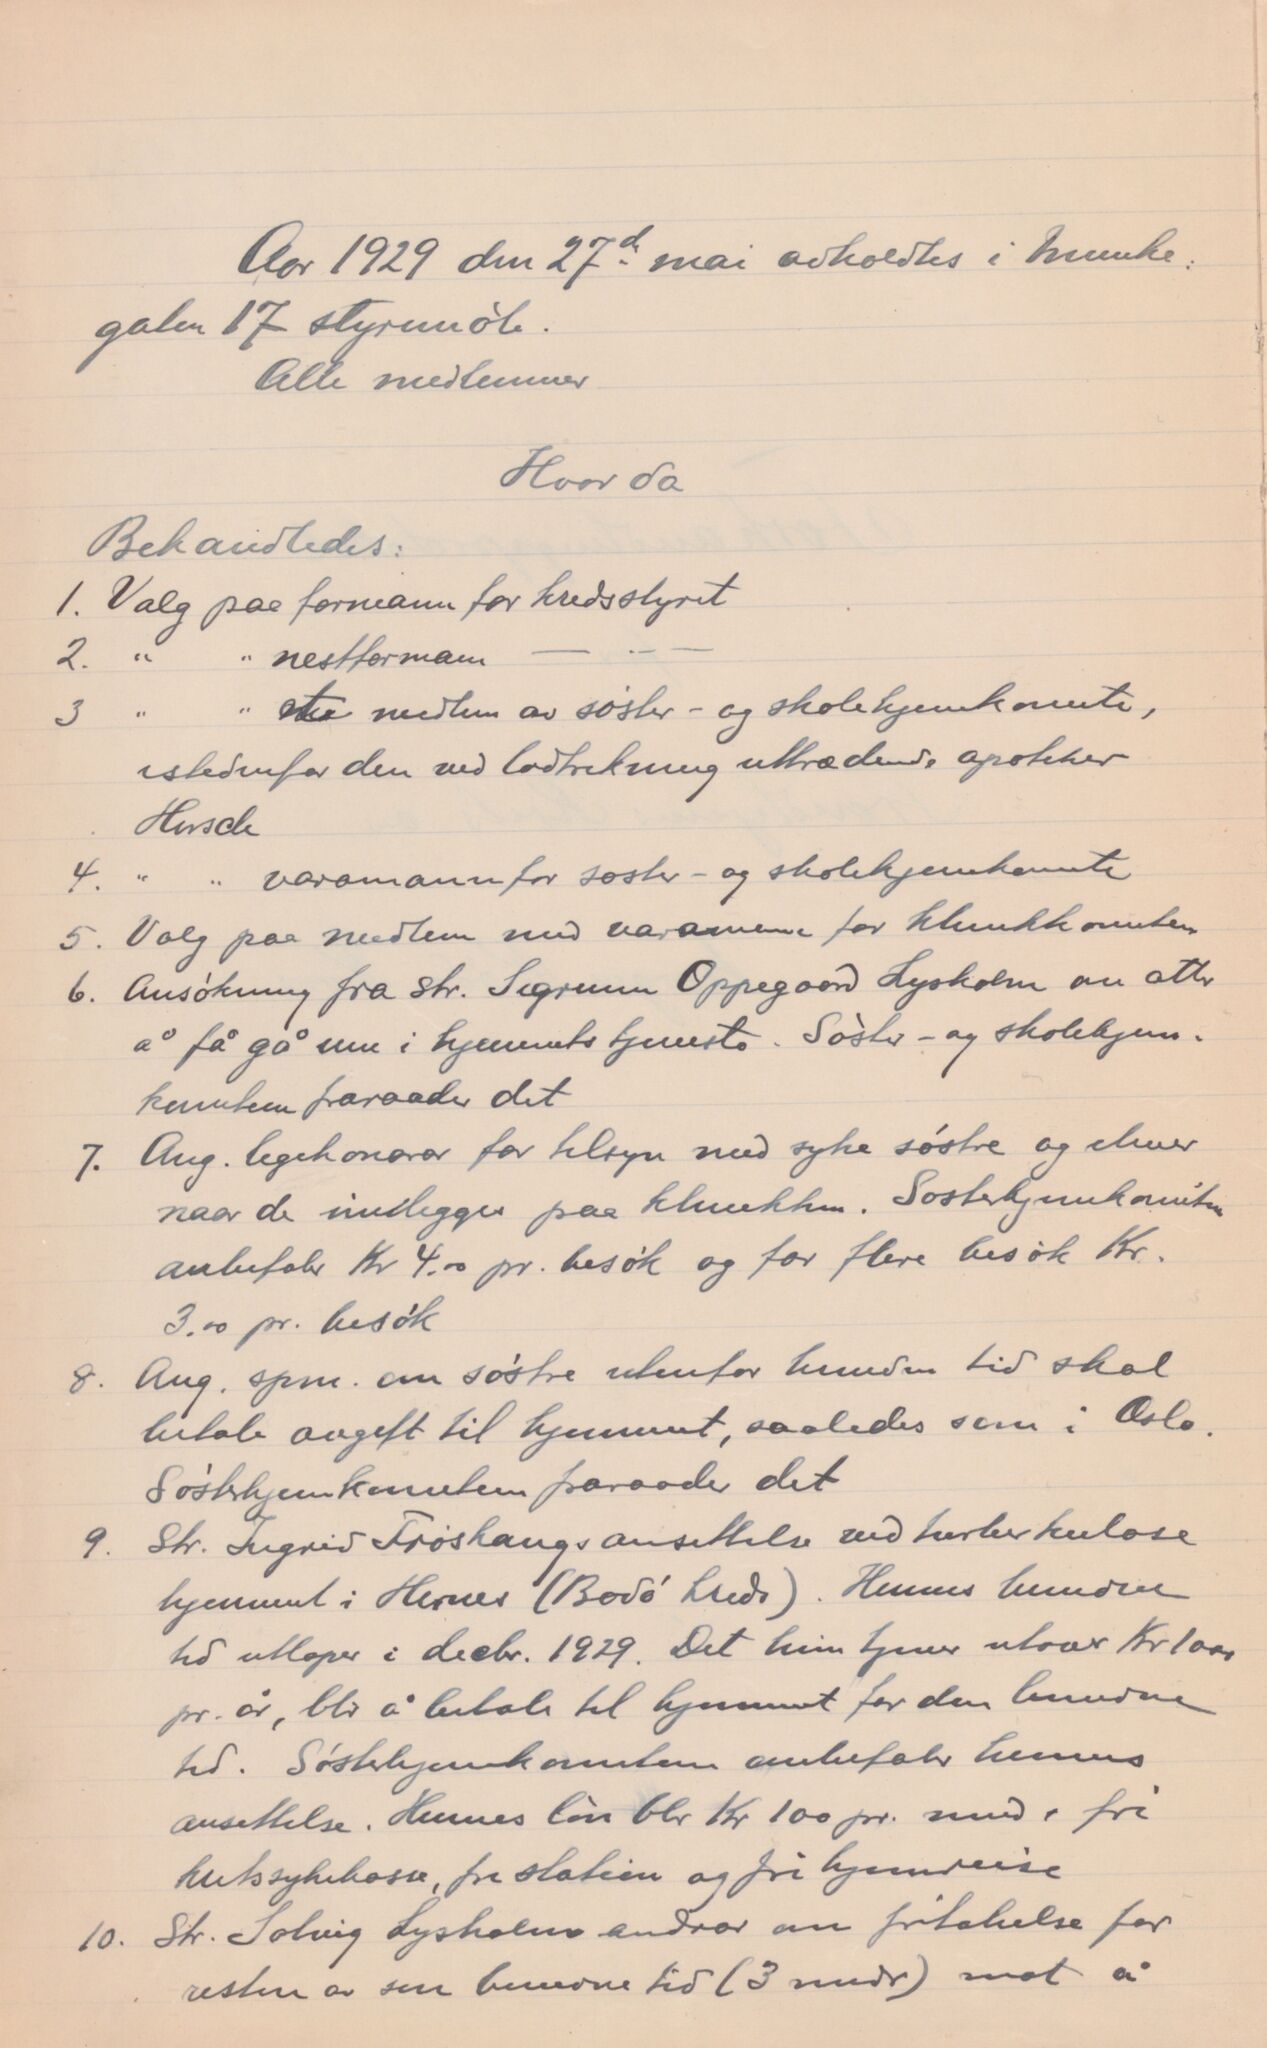 Aar 1929 den 27d. mai avholdtes i Munke-
gaten 17 styremöte.
Alle medlemmer
Hvor da
Behandledes:
1. Valg paa formann for kredsstyret
2. " " nestformann — " —
3 " " medlem av söster- og skolehjemkomite,
istedenfor den ved lodtrekning uttrædende apotheker
4. " " varamann for söster- og skolehjemkomite
5. Valg paa medlem med varamenn for klinikkomiteen
6. Ansökning fra str. Sigrunn Oppegaard Lysholm om atter
å få gå inn i hjemmets tjeneste. Söster- og skolehjem-
komiteen fraraader det
7. Ang. legehonorar for tilsyn med syke söstre og elever
naar de innlegges paa klinikken. Sösterhjemkomiteen
anbefaler Kr 4.00 pr. besök og for flere besök Kr.
3.00 pr. besök
8. Ang. spm. om söstre utenfor bunden tid skal
betale avgift til hjemmet, saaledes som i Oslo.
Sösterhjemkomiteen fraraader det
9. Str. Ingrid Fröshaugs ansettelse ved tuberkulose
hjemmet i Hernes (Bodö kreds). Hennes bundne
tid utløper i decbr. 1929. Det hun tjener utover Kr 1000
pr. år, blir å betale til hjemmet for den bundne
tid. Sösterhjemkomiteen anbefaler hennes
ansettelse. Hennes lön blir Kr 100 pr. mnd, fri
kretssykekasse, fri station og fri hjemreise
10. Str. Solveig Lysholm andrar om fritakelse for
resten av sin bundne tid (3 mndr) mot å